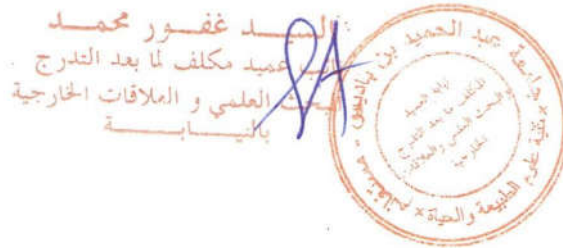 السيد غفور محمد
نائب عميد مكلف لما بعد التدرج
البحث العلمي و العلاقات الخارجية
بالنيابة
جامعة عبد الحميد بن باديس - مستغانم
كلية علوم الطبيعة والحياة
نيابة العمادة
المكلفة بما بعد التدرج
و البحث العلمي و العلاقات
الخارجية